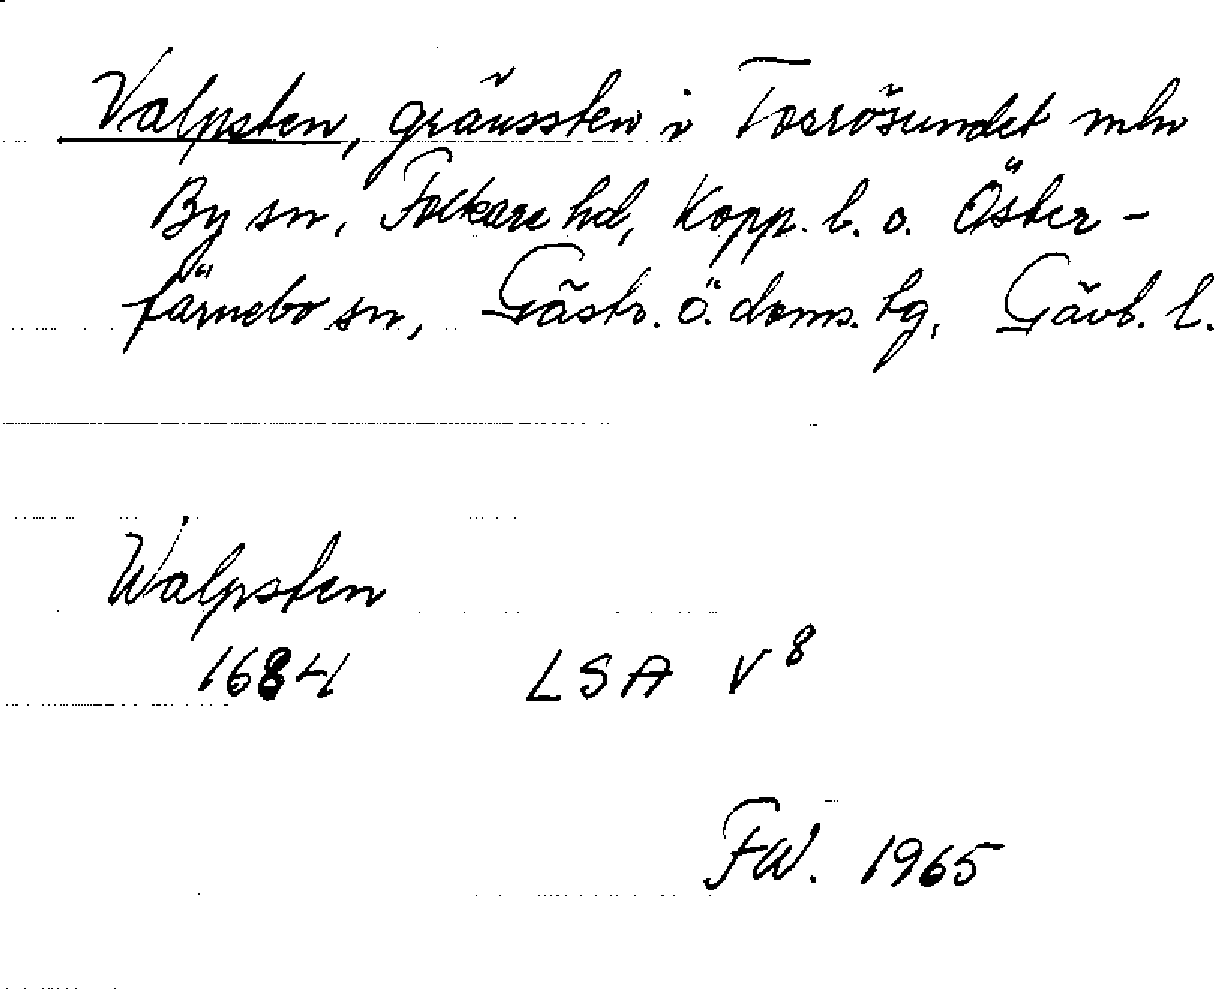 Valpsten, gränssten i Tosrösundet mln
By sn, Folkare hd, Kopp. l. o. Öster-
färnebo sn, Gästr. ö. doms. tg, Gävl. l.
Walpsten
1684 LSA V8
FW. 1965